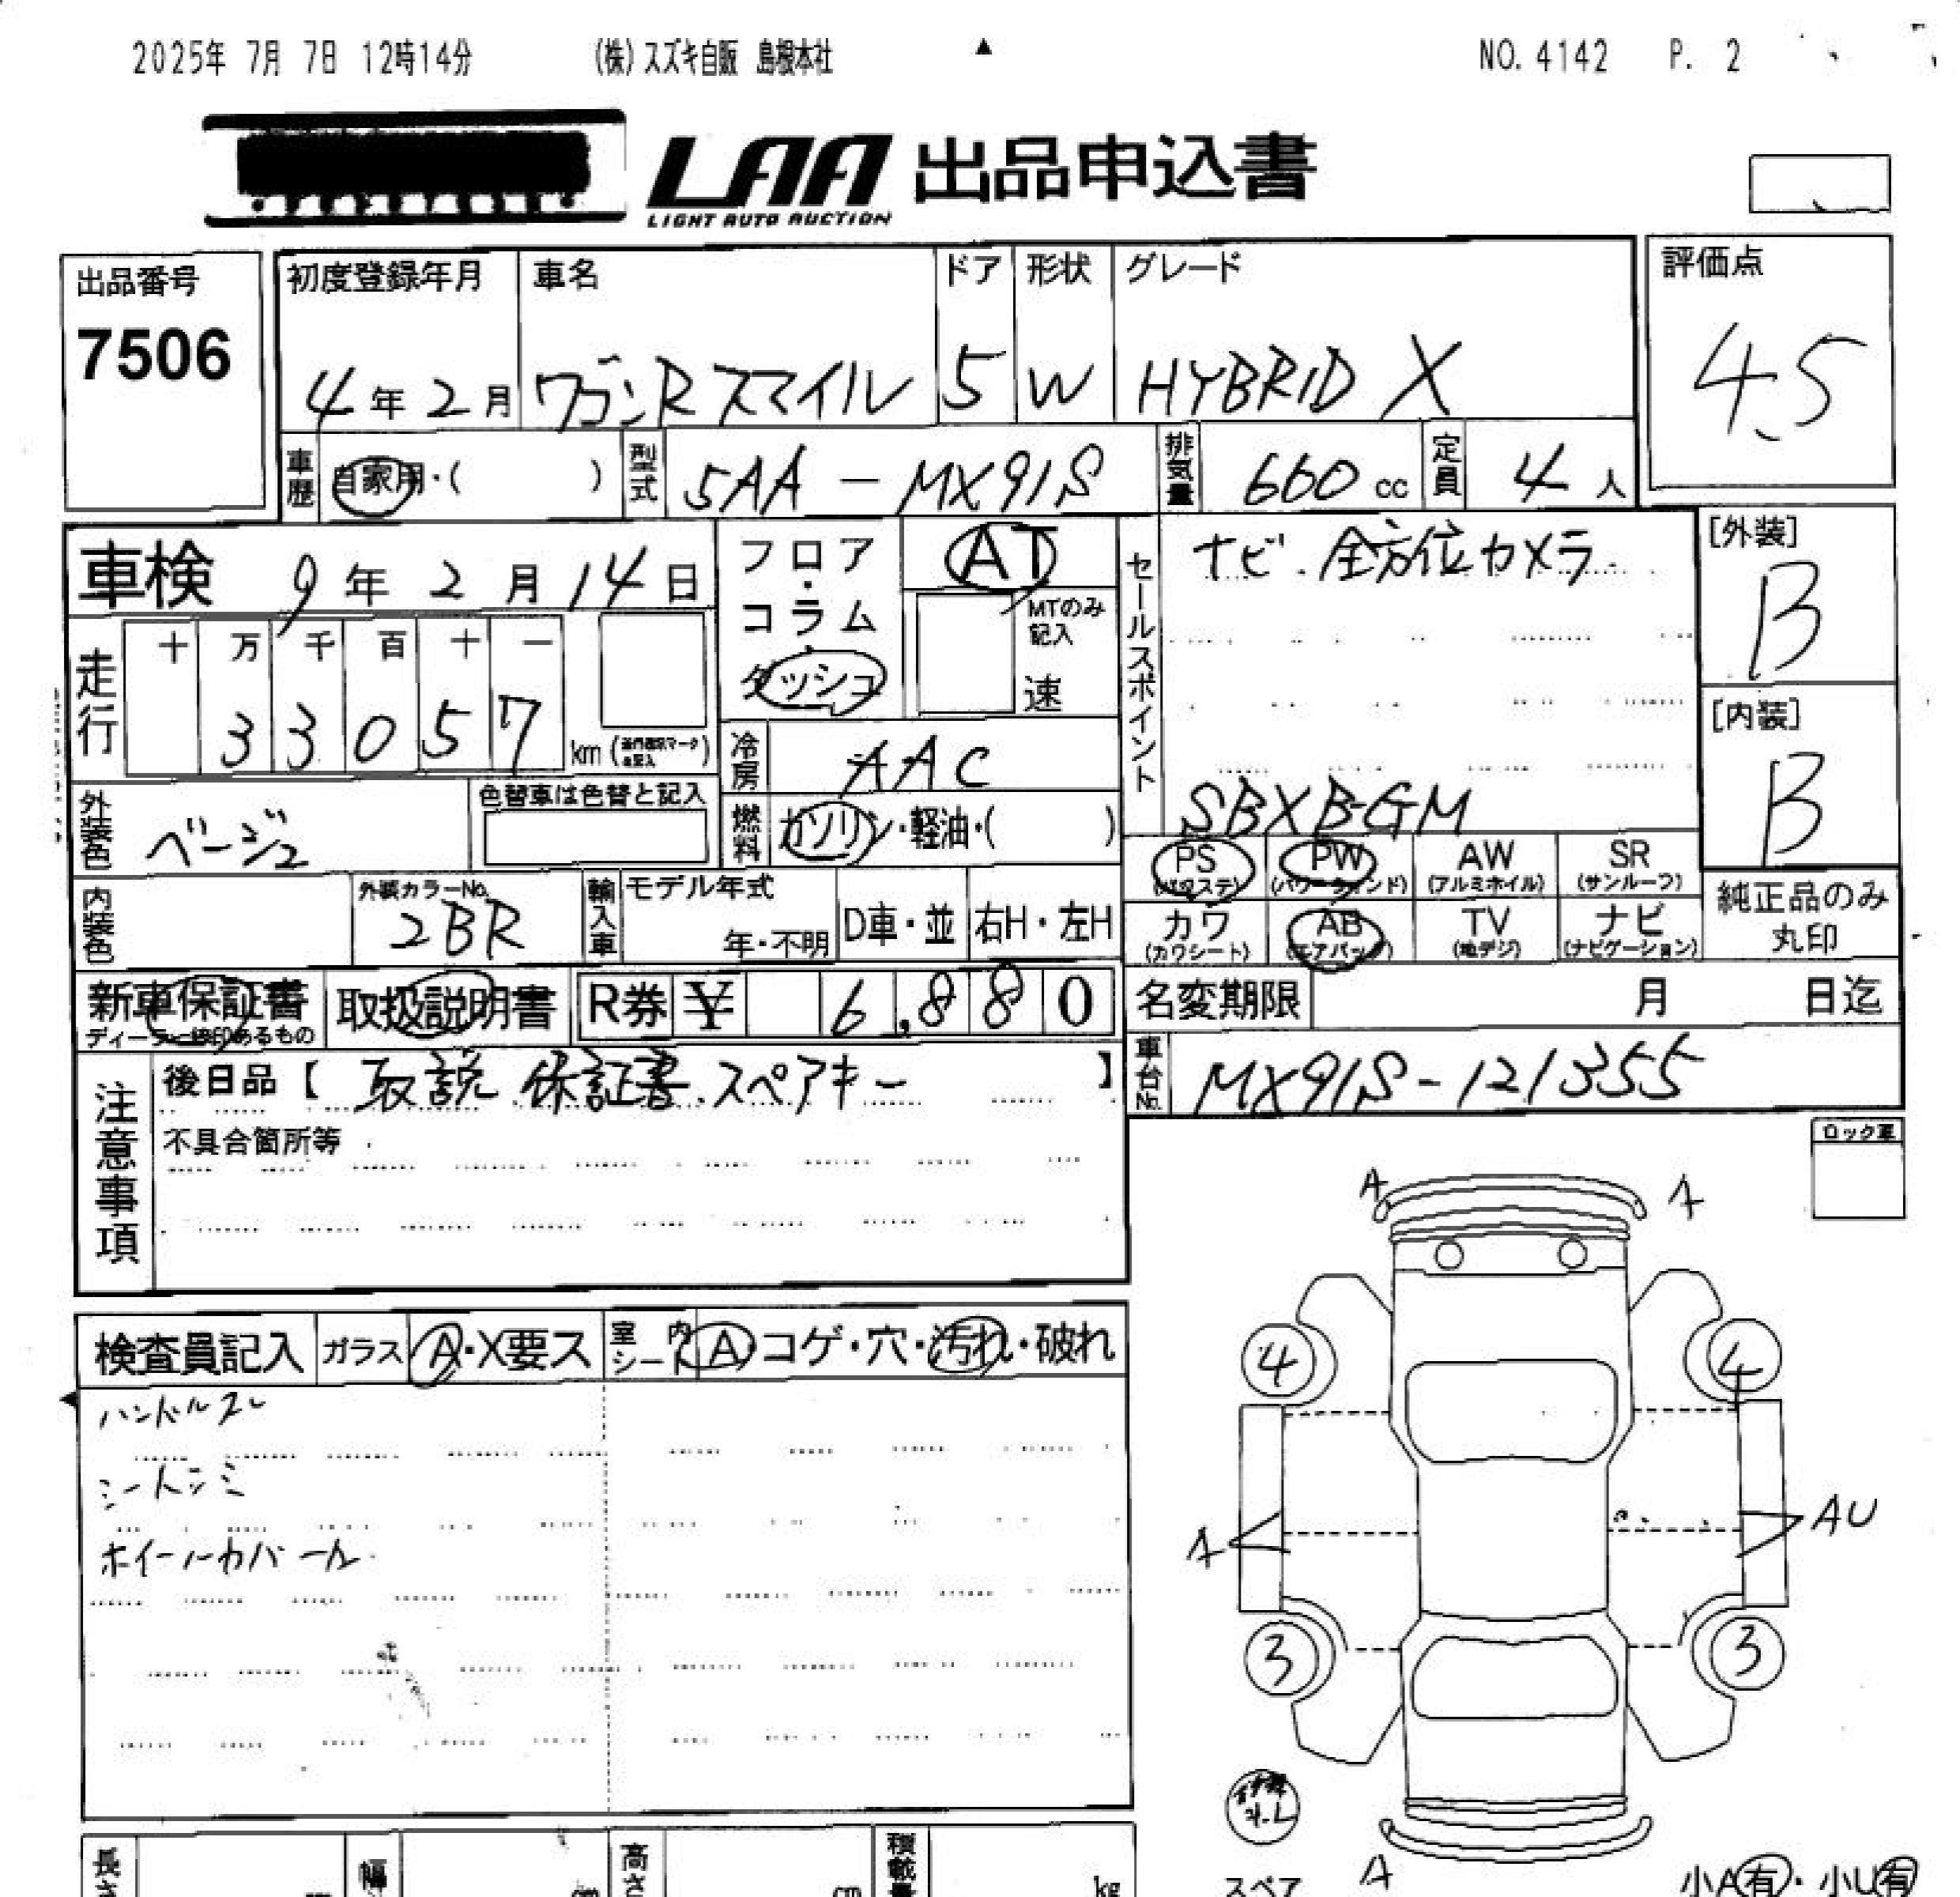 2025年 7月 7日 12時14分 (株)スズキ自販 島根本社 ▲ NO.4142 P. 2
LAA 出品申込書
LIGHT AUTO AUCTION
出品番号 7506
初度登録年月 4年2月
車名 ワゴンRスマイル
ドア 5
形状 W
グレード HYBRID X
評価点 4.5
車歴 自家用・( )
型式 5AA-MX91S
排気量 660cc
定員 4人
車検 9年2月14日
フロア・コラム・ダッシュ
AT
MTのみ記入 速
セールスポイント ナビ.全方位カメラ
SBXB-GM
[外装] B
[内装] B
走行 十万千百十一
33057 km
冷房 AAC
外装色 ベージュ
色替車は色替と記入
燃料 ガソリン・軽油・( )
PS (パワステ) PW (パワーウィンド) AW (アルミホイル) SR (サンルーフ)
カワ (カワシート) AB (エアバッグ) TV (地デジ) ナビ (ナビゲーション)
純正品のみ丸印
内装色
外装カラーNo. 2BR
輸入車 モデル年式 年・不明 D車・並 右H・左H
新車保証書 取扱説明書 R券 ¥ 6,880
名変期限 月 日迄
車台No. MX91S-121355
注意事項
後日品【 取説.保証書.スペアキー 】
不具合箇所等
ロック車
検査員記入 ガラス A・X要ス 室内シート A コゲ・穴・汚れ・破れ
ハンドルスレ
シートシミ
A A
4 4
A AU
3 3
A
長さ cm 幅 cm 高さ cm 積載量 kg
スペア
小A有・小U有